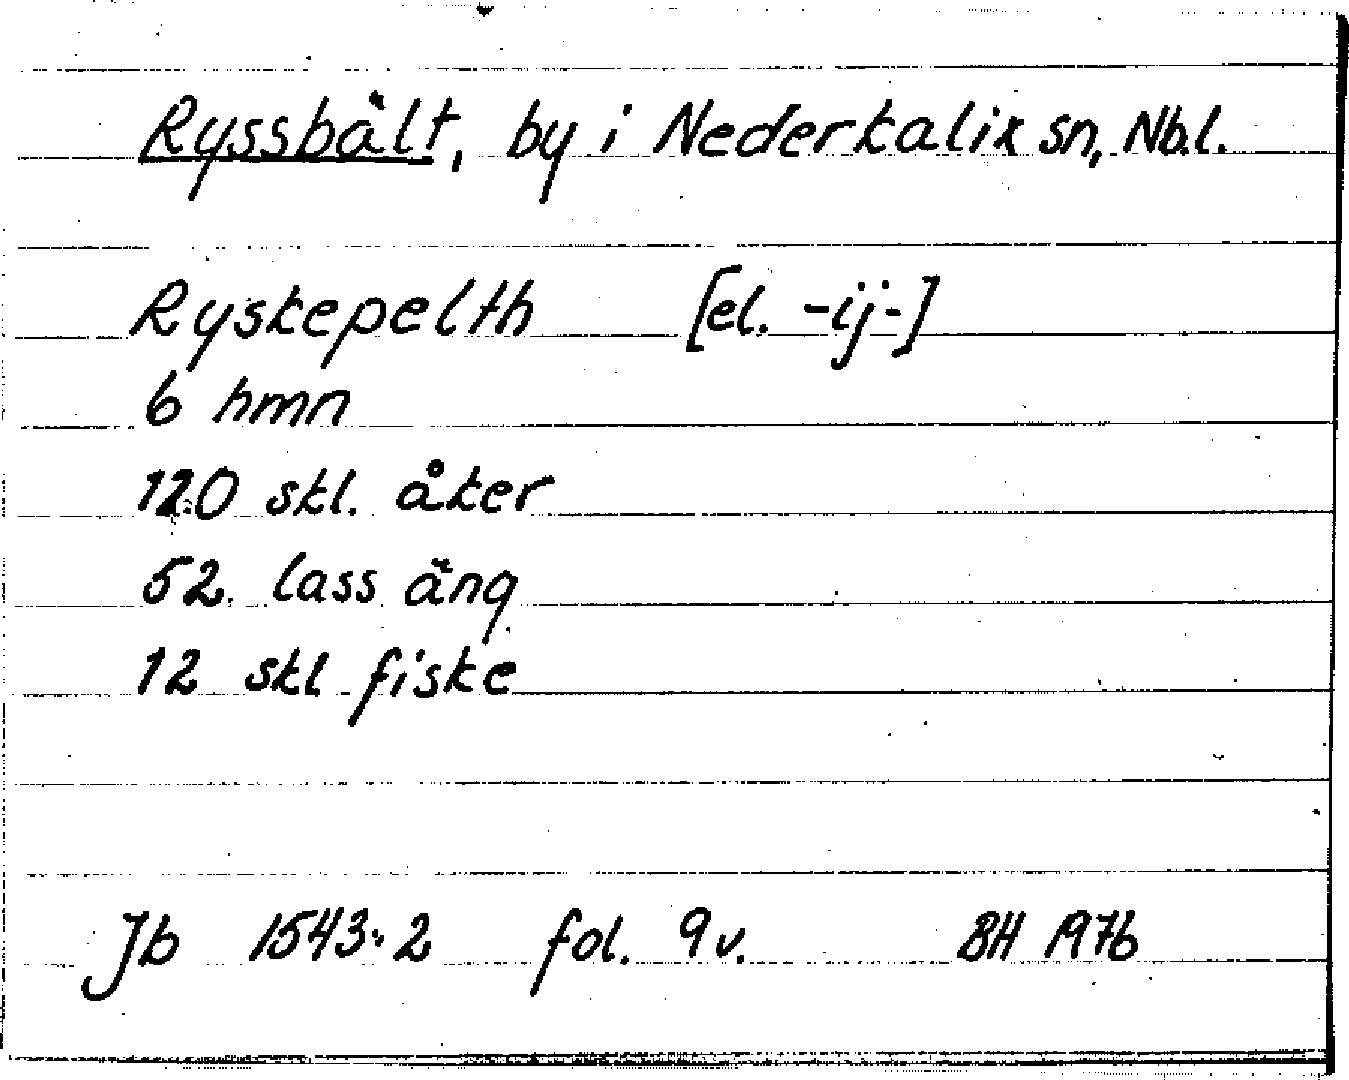 Ryssbält, by i Nederkalix sn, Nb.l.
Ryskepelth [el. -ij-]
6 hmn
120 skl. åker
52. lass äng
12 skl fiske
Jb 1543:2 fol. 9v. BH 1976